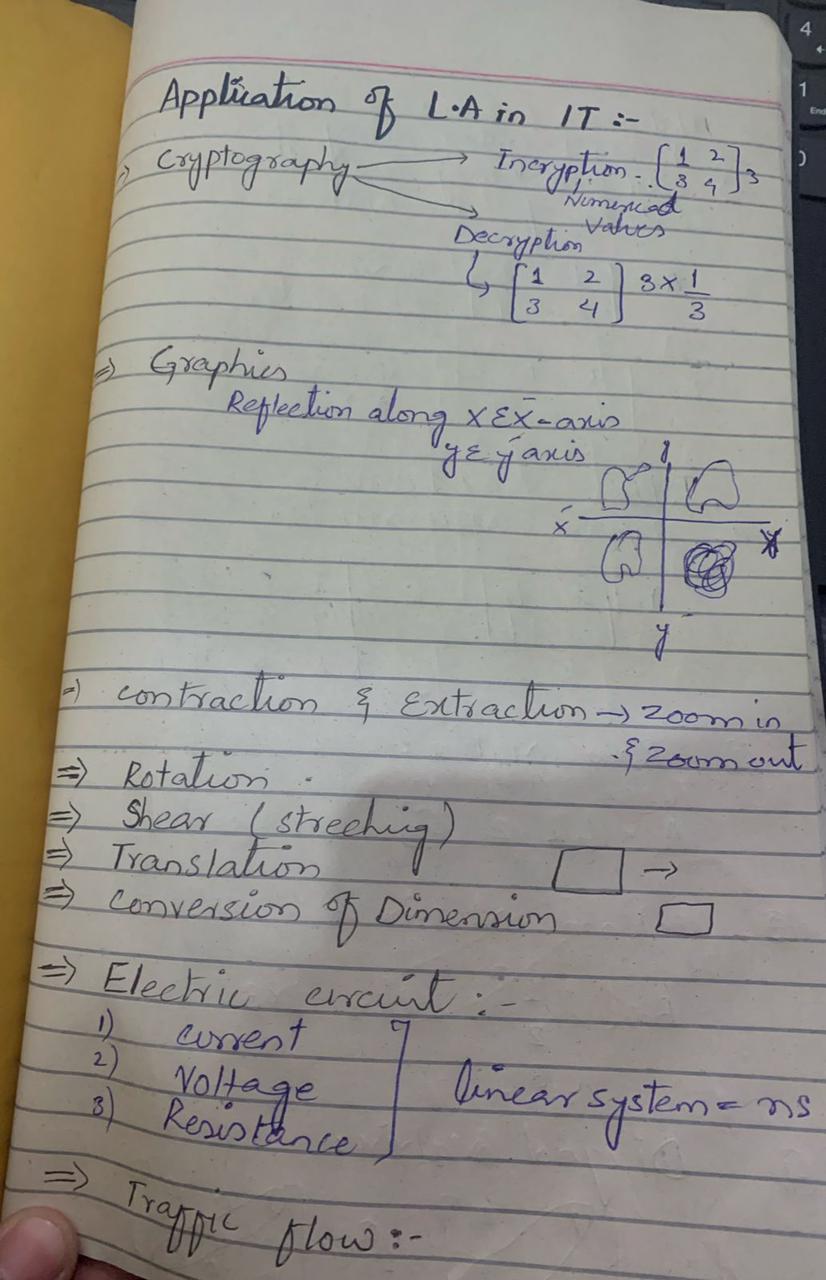 Application of L.A in IT :-
=> Cryptography → Incryption - [1 2 3 4] 3
Numerical
Values
Decryption
↳ [1 2 3 4] 3 × 1/3
=> Graphics
Reflection along x & x̄-axis
y & ȳ axis
x̄
y
=> Contraction & Extraction → Zoom in
& Zoom out
=> Rotation .
=> Shear (streching)
=> Translation →
=> Conversion of Dimension
=> Electric circuit :-
1) current
2) Voltage
3) Resistance
linear system = ns
=> Traffic flow :-